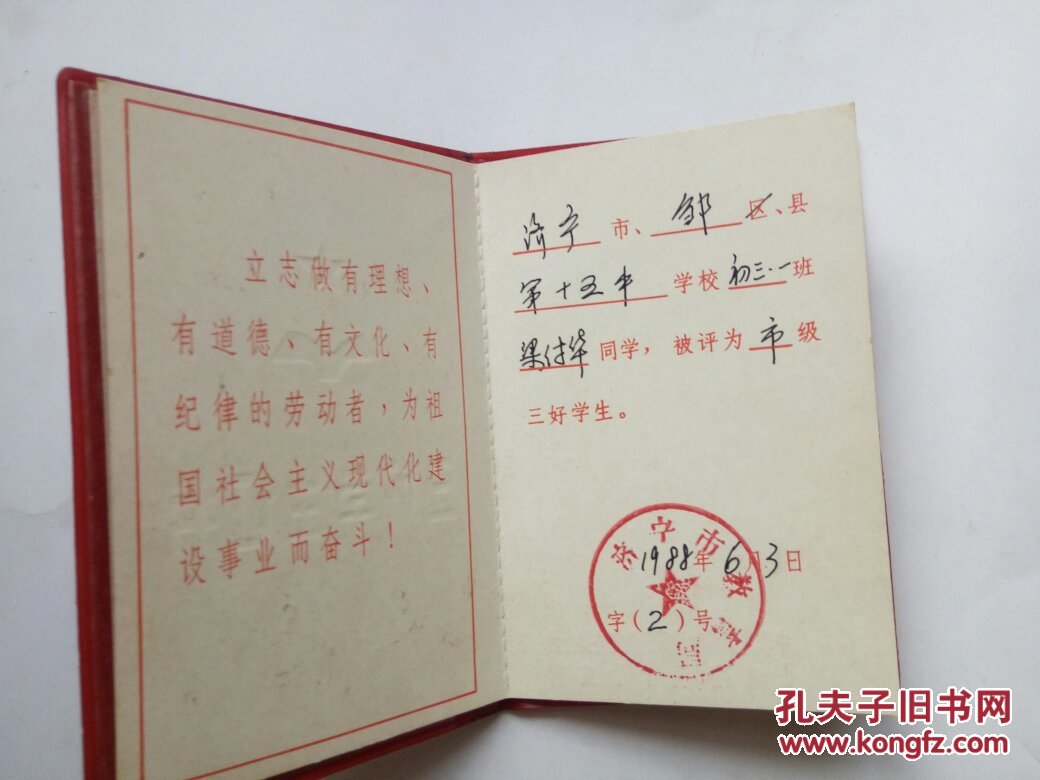 立志做有理想、
有道德、有文化、有
纪律的劳动者，为祖
国社会主义现代化建
设事业而奋斗！
济宁市、邹区、县
第十五中学校初三·一班
梁付华同学，被评为市级
三好学生。
济宁市教育局
1988年6月3日
字（2）号
孔夫子旧书网
www.kongfz.com